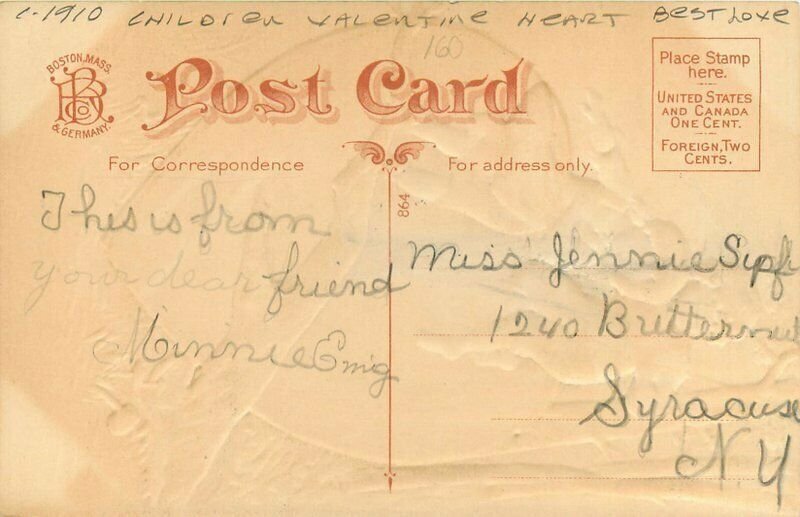 C-1910 CHILDREN VALENTINE HEART BEST LOVE
160
BOSTON, MASS.
& GERMANY.
Post Card
Place Stamp
here.
UNITED STATES
AND CANADA
ONE CENT.
FOREIGN, TWO
CENTS.
For Correspondence
For address only.
864
This is from
your dear friend
Minnie Emig
Miss Jennie
1240 Butternut
Syracuse
N.Y